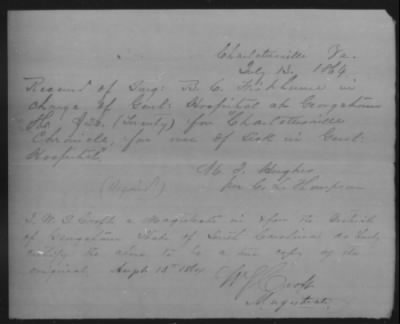 Charlottesville Va.
July 13. 1864
Received of Surg: B. C. Fishburne in
charge of Genl: Hospital at Georgetown
the $20. (Twenty) for Charlottesville
Chronicle, for use of Sick in Genl.
Hospital.
M. J. Hughes
per C. L. Thompson
(Signed)
I, W. J. Croft a Magistrate in & for the District
of Georgetown State of South Carolina do duly
certify the above to be a true copy of the
original, Augt 15th 1864
W J Croft
Magistrate